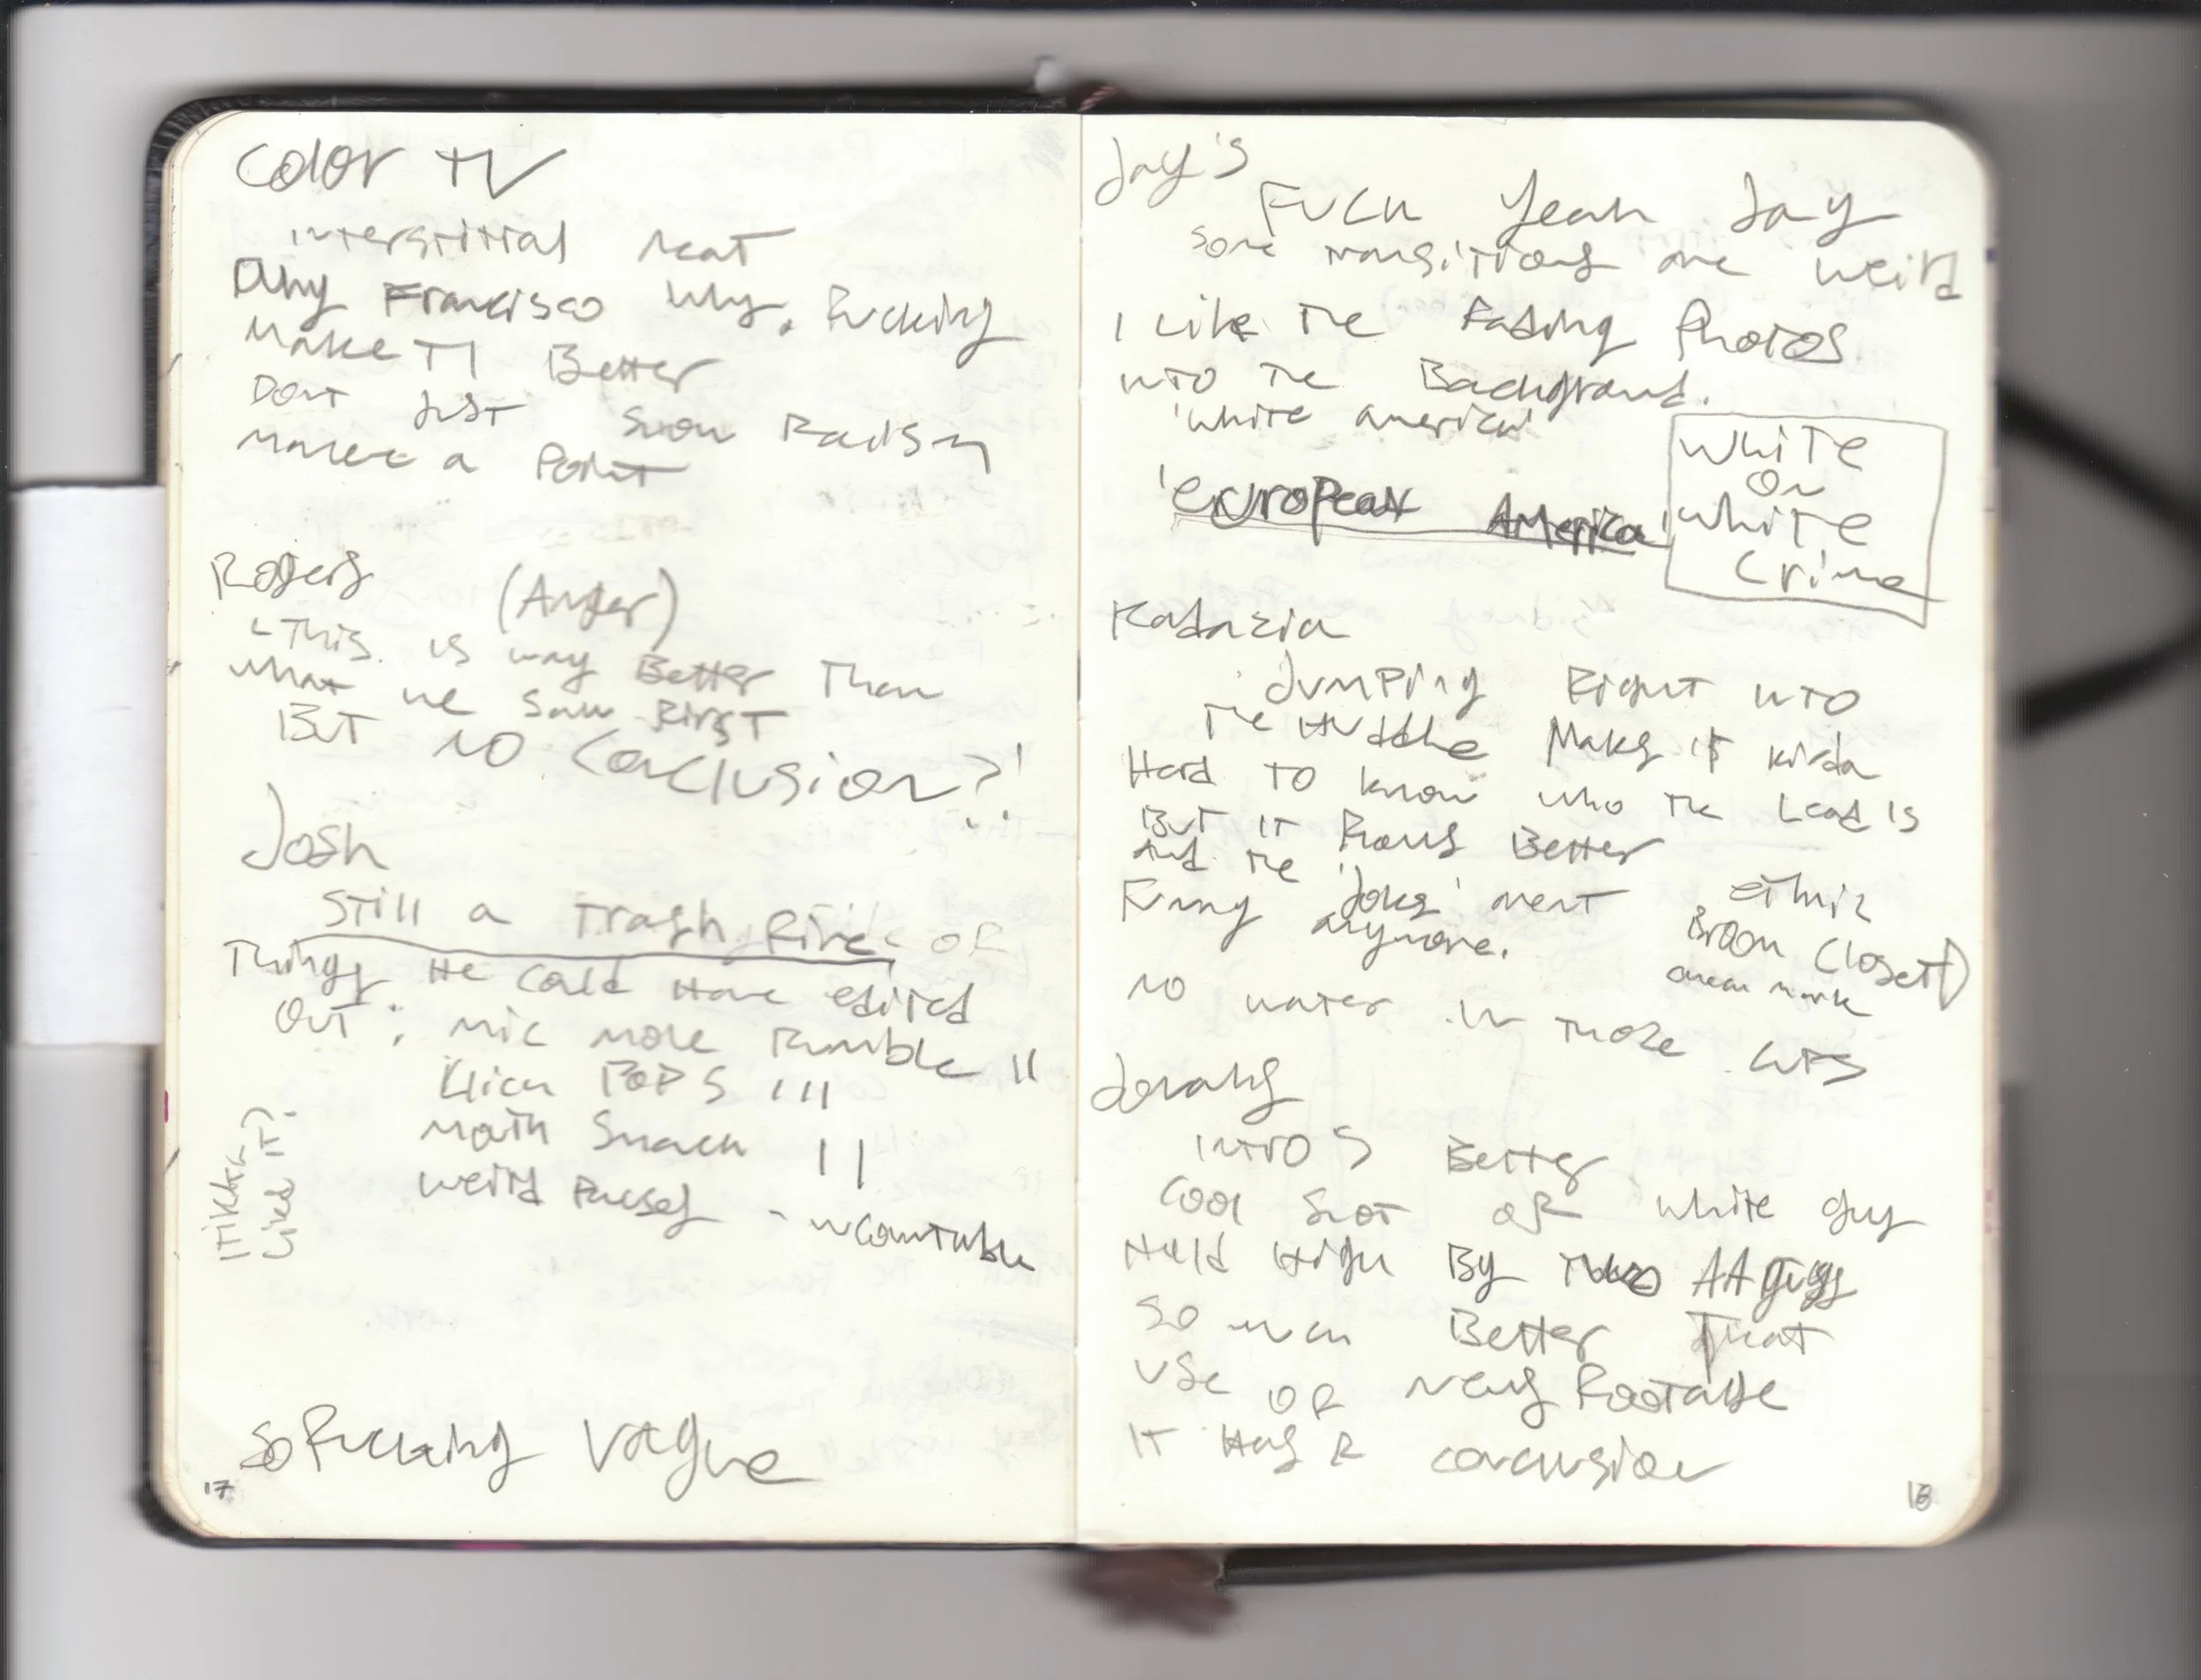 Color TV
interstitial neat
Why Francisco Why, Fucking
Make TI Better
Dont Just Show Racism
Make a Point
Rogers (Anger)
This is way Better Than
what we saw First
But NO Conclusion?!
Josh
Still a Trash Fire OF
Things He Could Have edited
Out: mic Rumble II
Click POPS III
Mouth Smack II
weird Pauses - uncountable
Liked IT?
So Fucking Vague
17
Jay's
Fuck Yeah Jay
some transitions are weird
I Like The Fading Photos
into The Background.
'white america'
'European America'
White
On
White
Crime
Jumping Right into
The Huddle Makes it kinda
Hard To know who The Lead is
But IT Flows Better
And The 'Jokes' arent
Funny anymore.
ethnic
Broom Closet
NO water in those cups
Intro's Better
Cool Shot OF white guy
Held High By Two AA guys
So much Better That
Use OF News Footage
IT Has A conclusion
18